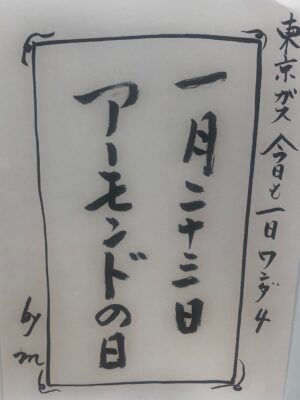 東京ガス 今日も一日ワンダ4
一月二十三日
アーモンドの日
by m